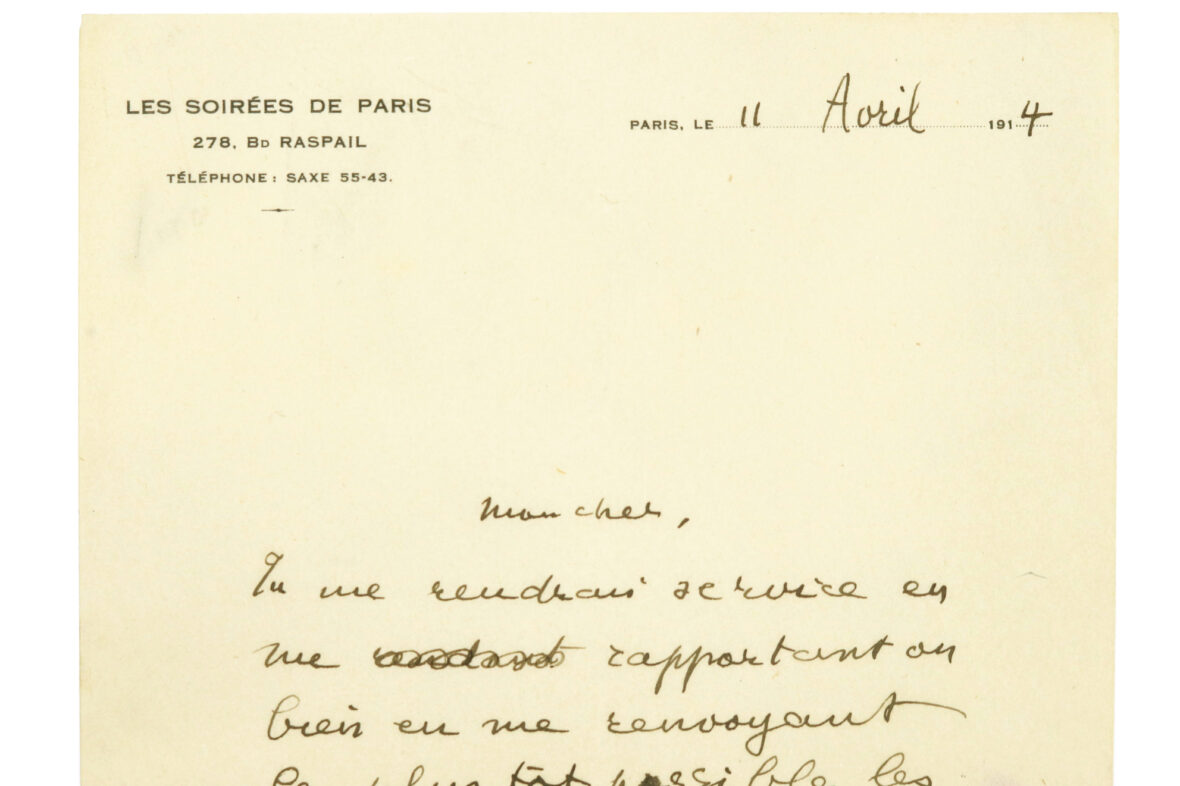 LES SOIRÉES DE PARIS
278, BD RASPAIL
TÉLÉPHONE : SAXE 55-43.
PARIS, LE 11 Avril 1914
Mon cher,
Tu me rendrais service en
me rapportant ou
bien en me renvoyant
le plus tôt possible les